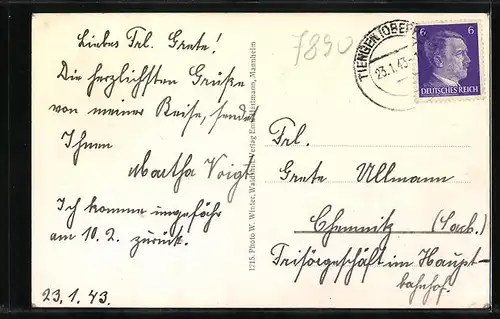 Liebes Frl. Grete!
Die herzlichsten Grüße
von meiner Reise, sendet
Ihnen
Martha Voigt
Ich komme ungefähr
am 10.2. zurück.
23.1.43.
1715. Photo W. Winter, Waldshut-Verlag Mannheim
7890
TIENGEN (OBERRH
23.1.43-1
6 6
DEUTSCHES REICH
Frl.
Grete Ullmann
Chemnitz (Sach.)
Frisörgeschäft im Haupt-
bahnhof.